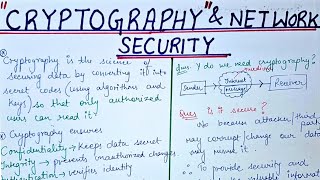 "CRYPTOGRAPHY" & NETWORK
SECURITY
Cryptography is the science of
securing data by converting it into
secret codes (using algorithms and
keys) so that only authorized
users can read it)
Cryptography ensures
Confidentiality → Keep data secret
Integrity → prevents unauthorized changes
Authentication → verifies identity
Ques: Y do we need cryptography?
medium
Sender → Internet → Receiver
message
Ques is it secure?
No because attacker/third
party
may corrupt change our data
misuse it.
To provide security and
valuable information